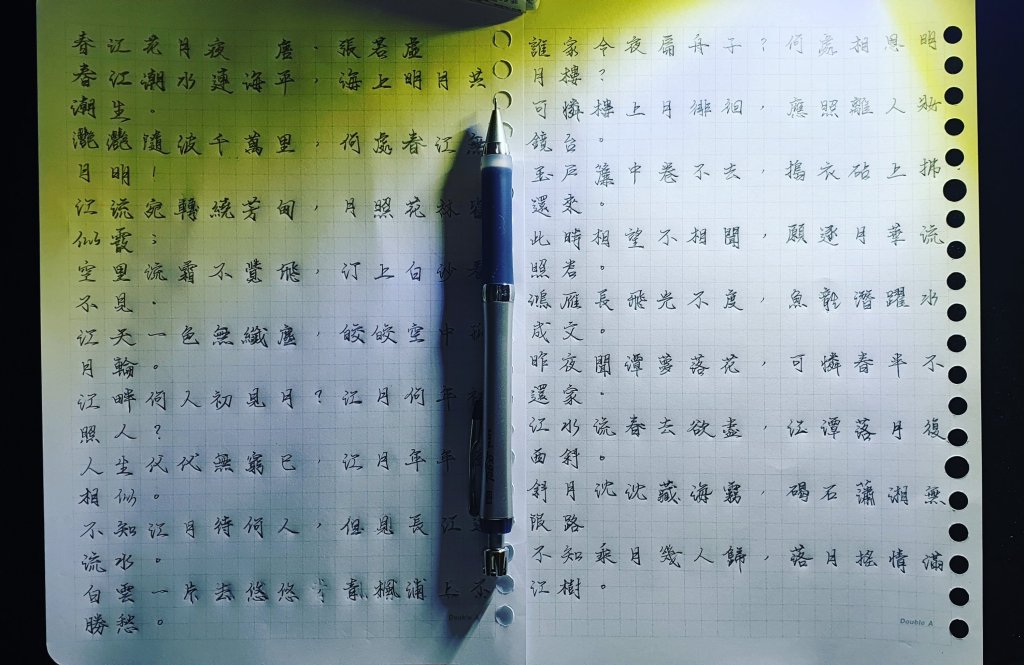 春江花月夜　唐．張若虛
春江潮水連海平，海上明月共
潮生．
灩灩隨波千萬里，何處春江無
月明！
江流宛轉繞芳甸，月照花林皆
似霰；
空里流霜不覺飛，汀上白沙看
不見．
江天一色無纖塵，皎皎空中
月輪。
江畔何人初見月？江月何年
照人？
人生代代無窮已，江月年年
相似。
不知江月待何人，但見長江送
流水。
白雲一片去悠悠，青楓浦上不
勝愁。
Double A
誰家今夜扁舟子？何處相思明
月樓？
可憐樓上月徘徊，應照離人妝
鏡台。
玉戶簾中卷不去，搗衣砧上拂
還來。
此時相望不相聞，願逐月華流
照君。
鴻雁長飛光不度，魚龍潛躍水
成文。
昨夜閒潭夢落花，可憐春半不
還家．
江水流春去欲盡，江潭落月復
西斜。
斜月沈沈藏海霧，碣石瀟湘無
限路
不知乘月幾人歸，落月搖情滿
江樹。
Double A